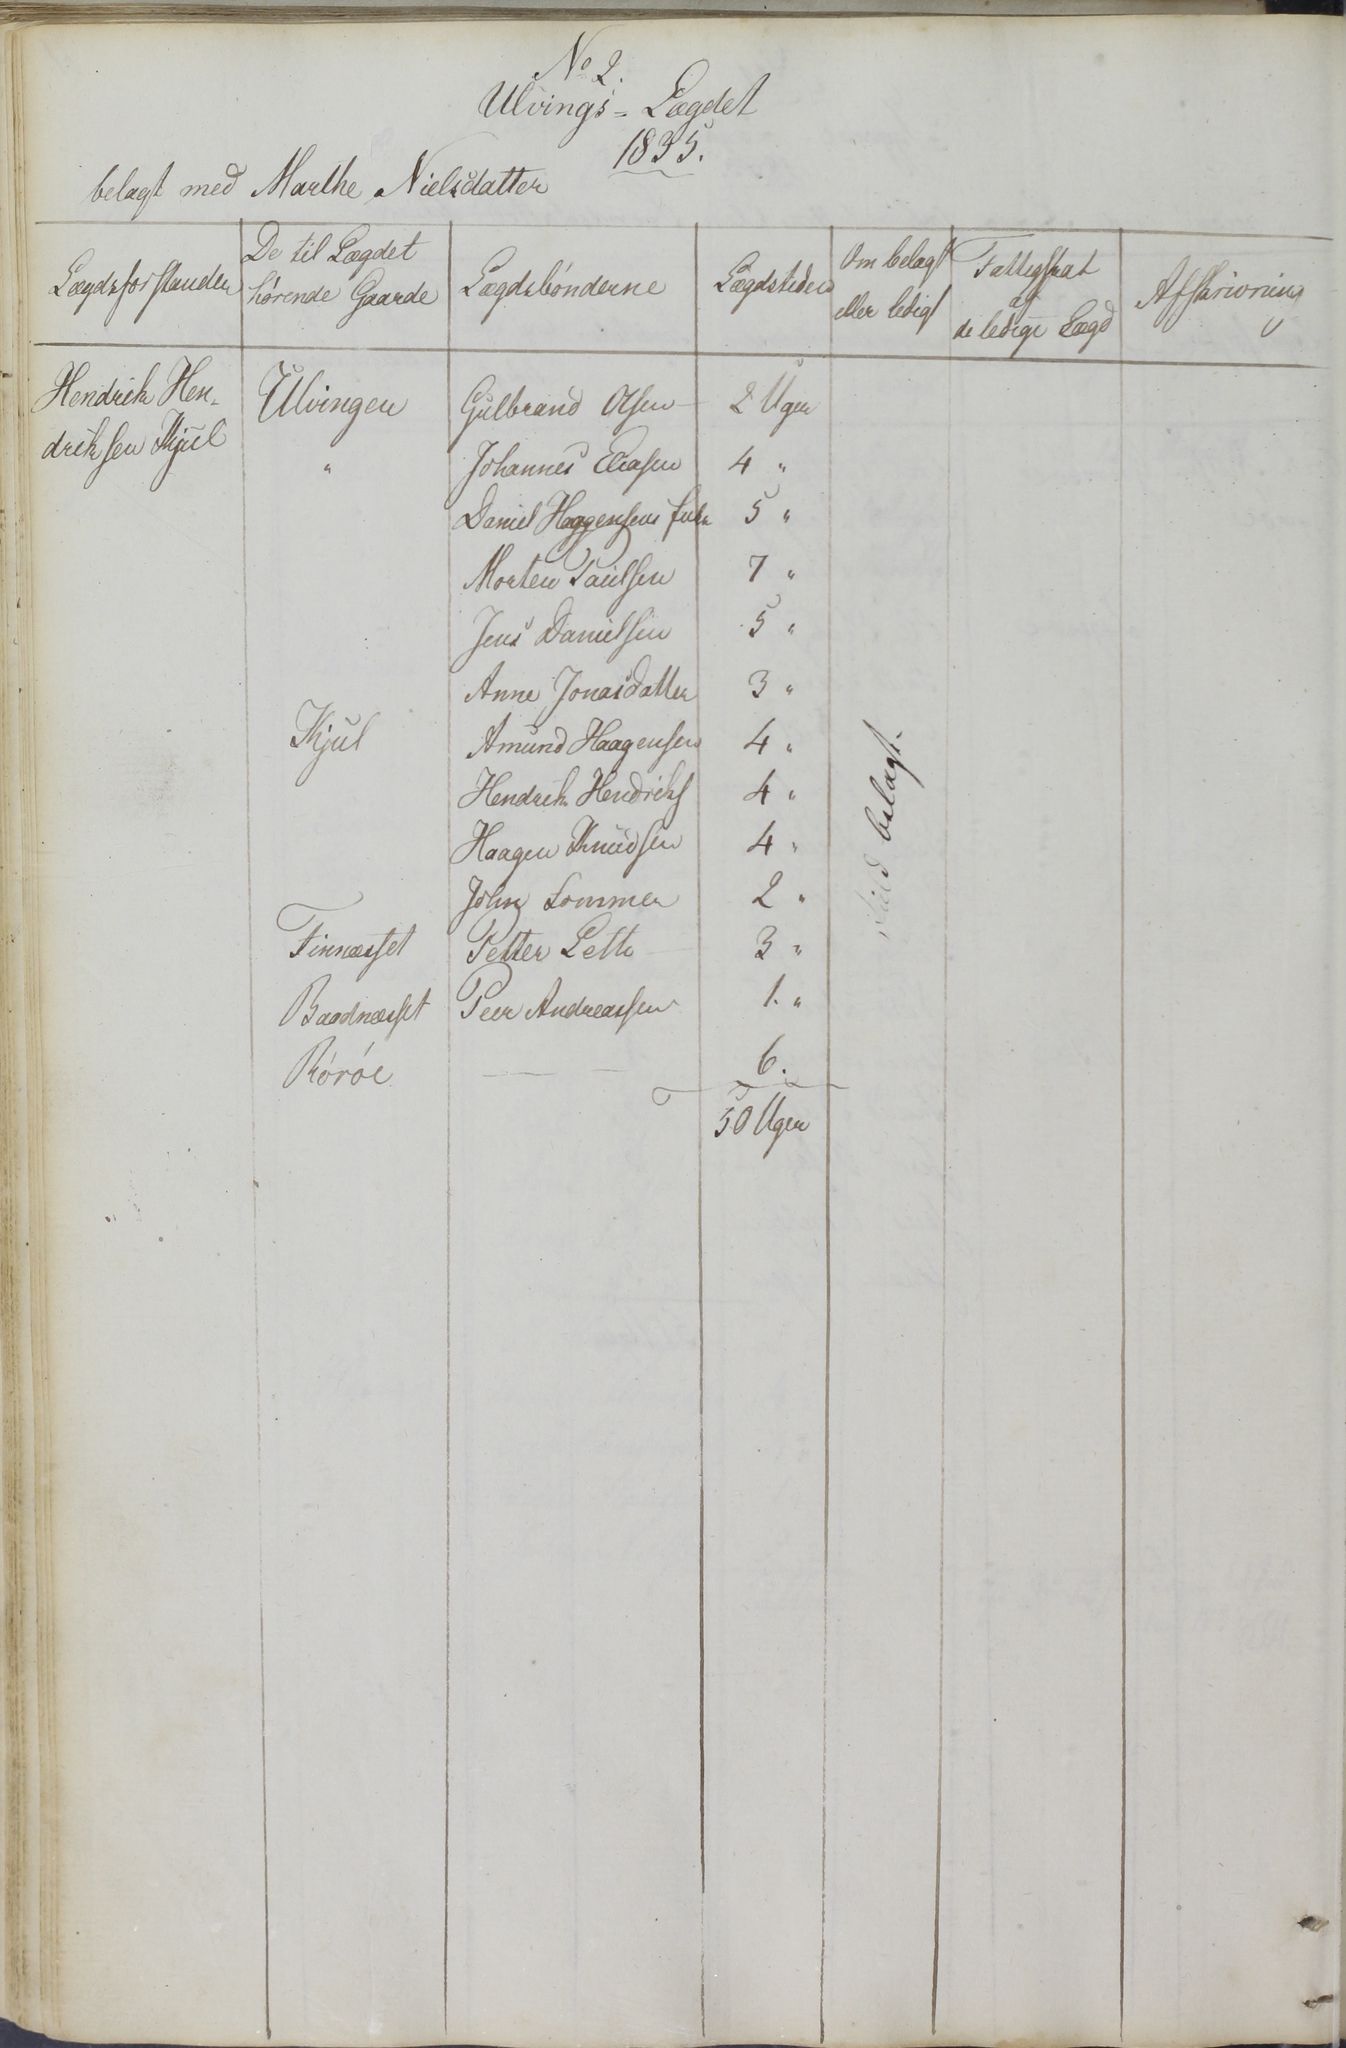 No 2.
Ulvings-Lægdet
1835.
belagt med Marthe Nielsdatter
Lægdsforstanderen | De til Lægdet hørende Gaarde | Lægdsbønderne | Lægdstiden | Om belagt eller ledigt | Fattigskat af de ledige Lægd | Afskrivning
Hendrik Hen- | Ulvingen | Gulbrand Olsen | 2 Uger
driksen Kjul | " | Johannes Eliasen | 4 "
Daniel Haagensens | 5 "
Morten Paulsen | 7 "
Jens Danielsen | 5 "
Anne Jonasdatter | 3 "
Kjul | Amund Haagensen | 4 "
Hendrik Hendriks | 4 "
Haagen Knudsen | 4 "
John Sommer | 2 "
Finnæsset | Petter Letto | 3 "
Baadnæsset | Peer Andreassen | 1. "
Rørøe | — — | 6.
50 Uger
fuld belagt.